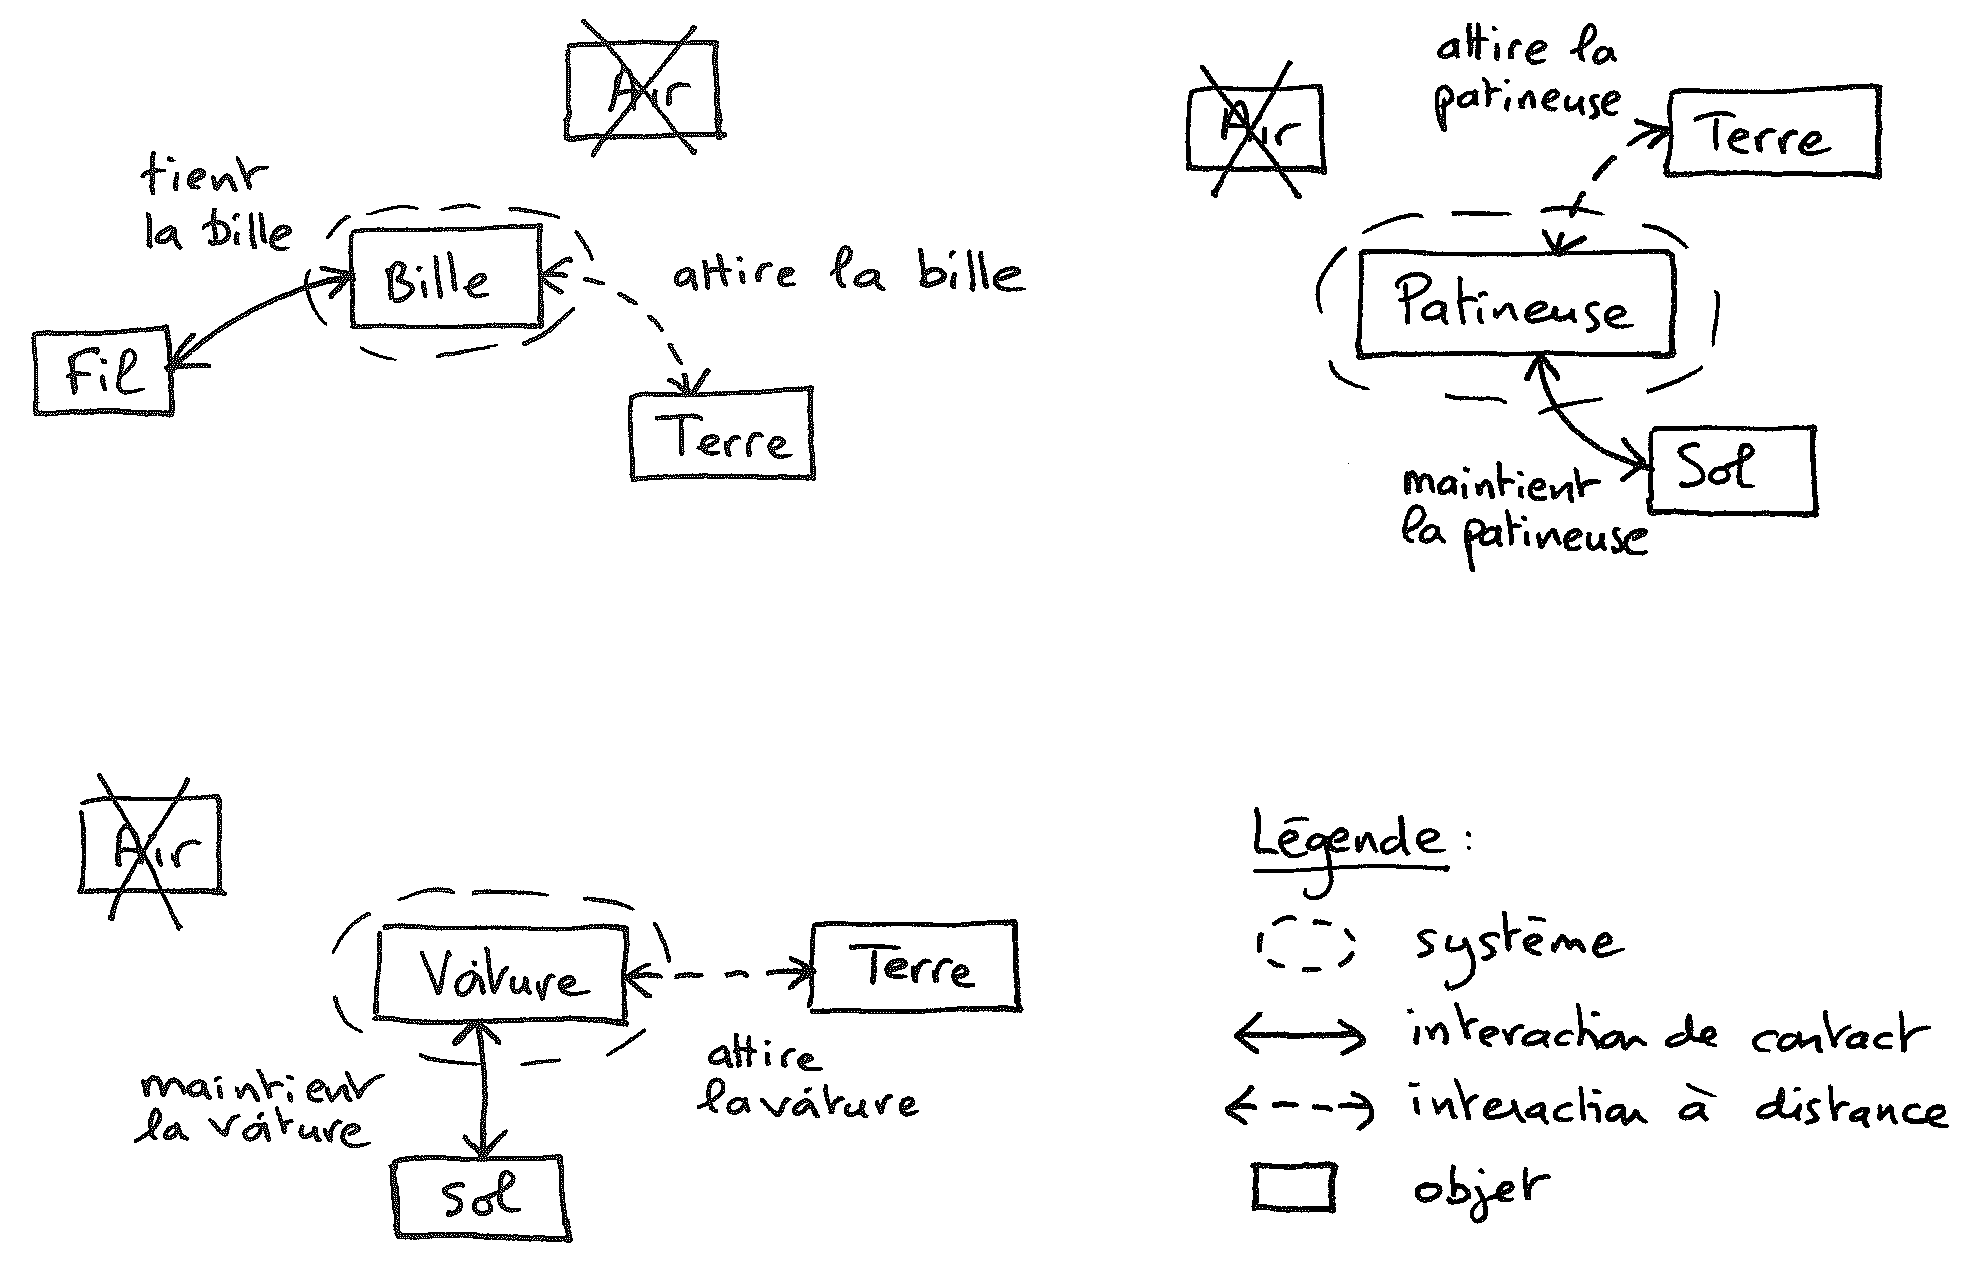 Air
tient
la bille
Bille
attire la bille
Fil
Terre
attire la
patineuse
Air
Terre
Patineuse
Sol
maintient
la patineuse
Air
Voiture
Terre
maintient
la voiture
attire
la voiture
Sol
Légende :
système
interaction de contact
interaction à distance
objet